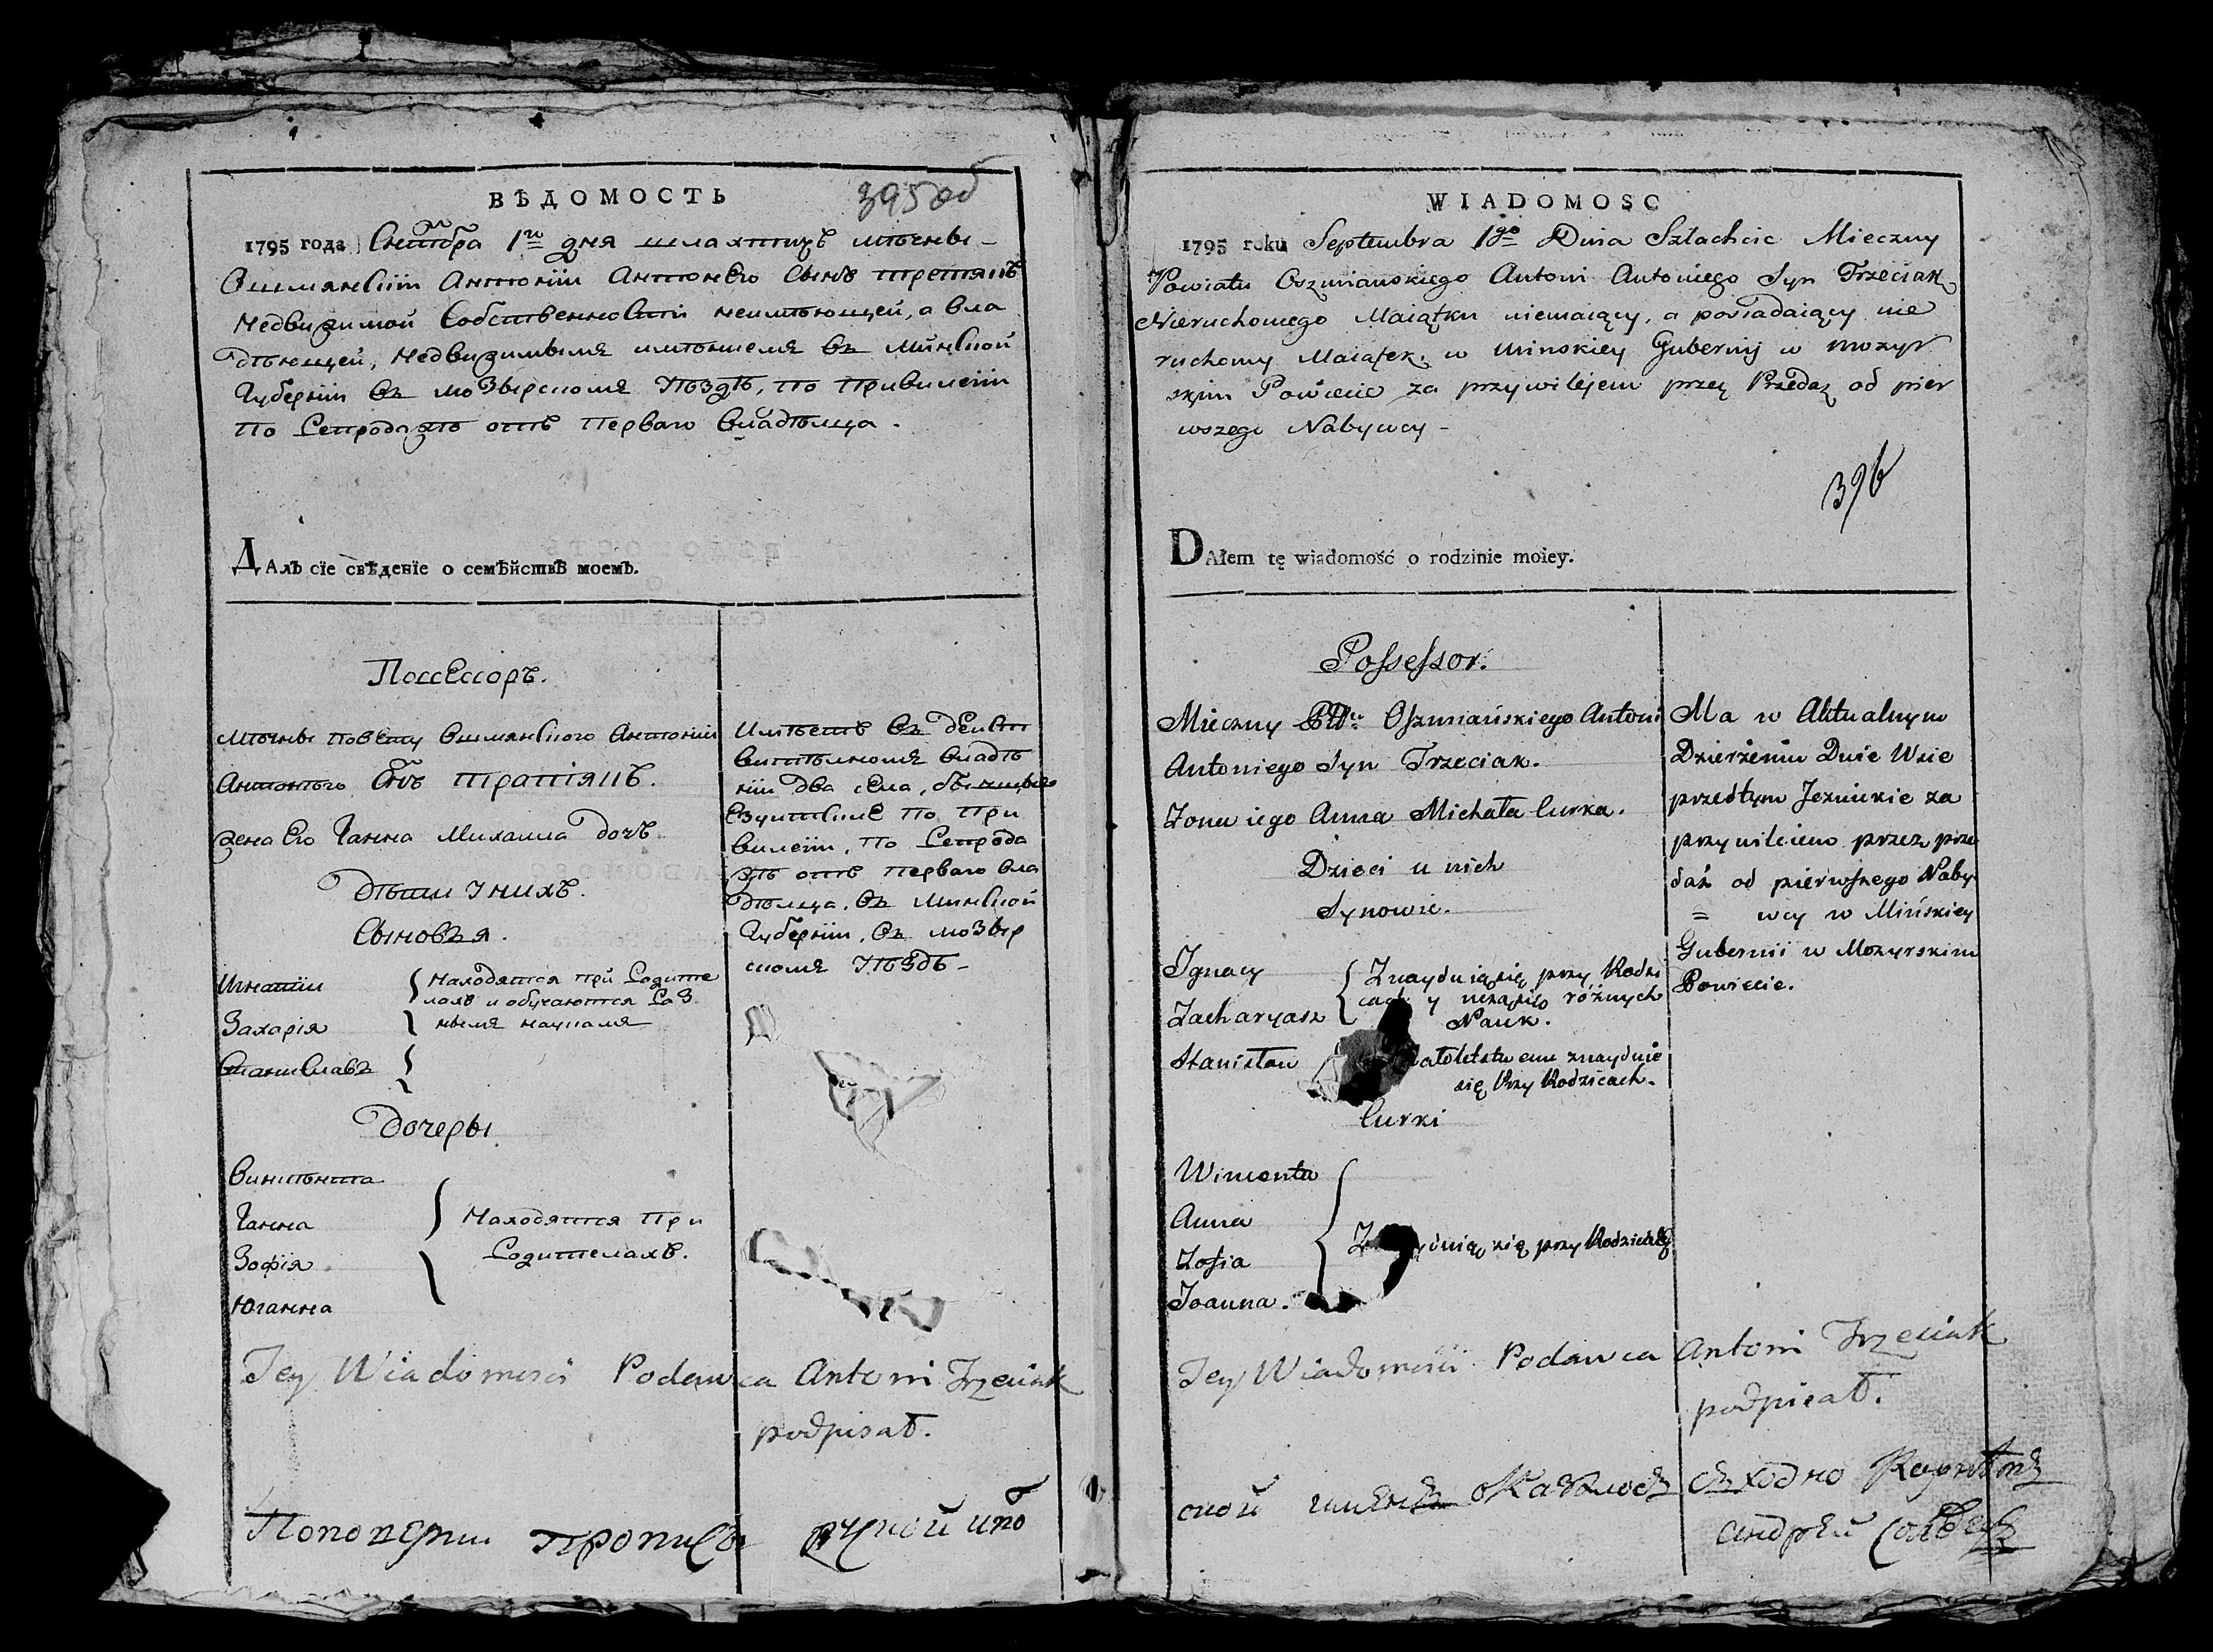 ВѢДОМОСТЬ
395 об
1795 года Сентебра 1го дня шляхтичъ мѣчны
Ошмянскіи Антоніи Антонего Сынъ Третякъ
Недвижимой Собственности неимѣющей, а вла
дѣющей, Недвижимымъ имѣніемъ въ Минской
Губерніи въ мозырскомъ Уѣздѣ, по Привилегіи
По Репродажѣ отъ Перваго владѣльца.
ДАлъ сїе свѣденїе о семѣйствѣ моемъ.
Поссесоръ.
Мѣчны Повету Ошмянского Антоній
Антонѣго Снъ Трапіякъ.
жена Его Ганна Михаила дочъ
дѣти У нихъ.
Сыновъя.
Игнатіи
Захарія
Находятся При Родите
лахъ и обучаются Раз
нымъ наукамъ
Станиславъ
Дочеры
Винцента
Ганна
Зофія
Юганна
Находятся При
Родителахъ.
Имѣетъ въ дейст
вителномъ владѣ
ніи два села, бывшые
Езуитские По При
вилегіи, По Репрода
жѣ отъ перваго вла
дѣлца. въ Минской
Губерніи, въ мозыр
скомъ Уѣздѣ-
Tey Wiadomości Podawca Antoni Trzeciak
podpisał.
WIADOMOSC
1795 roku Septembra 1go Dnia Szlachcic Mieczny
Powiatu Oszmianskiego Antoni Antoniego Syn Trzeciak
Nieruchomego Maiątku niemaiący, a posiadaiący nie
ruchomy Maiątek. w Minskiey Gubernij w mozyr
skim Powiecie za przywilejem przez Przedaz od pier
wszego Nabywcy -
396
DAłem tę wiadomość o rodzinie moiey.
Possessor.
Mieczny Ptu Oszmiańskiego Antoni
Antoniego Syn Trzeciak.
Zona iego Anna Michała Curka.
Dzieci u nich
Synowie.
Ignacy
Zacharyasz
Znayduiąsię przy Rodzi
y uczącsię różnych
Nauk.
Stanisław
znayduie
się Przy Rodzicach.
Curki
Wincenta
Anna
Zofia
Joanna.
się przy Rodzicach
Ma w Aktualnym
Dzierżeniu Dwie Wsie
przedtym Jezuickie za
przywileiem przez prze
daż od pierwszego Naby
= wcy w Mińskiey
Gubernii w Mozyrskim
Powiecie.
Tey Wiadomości Podawca Antoni Trzeciak
podpisał.